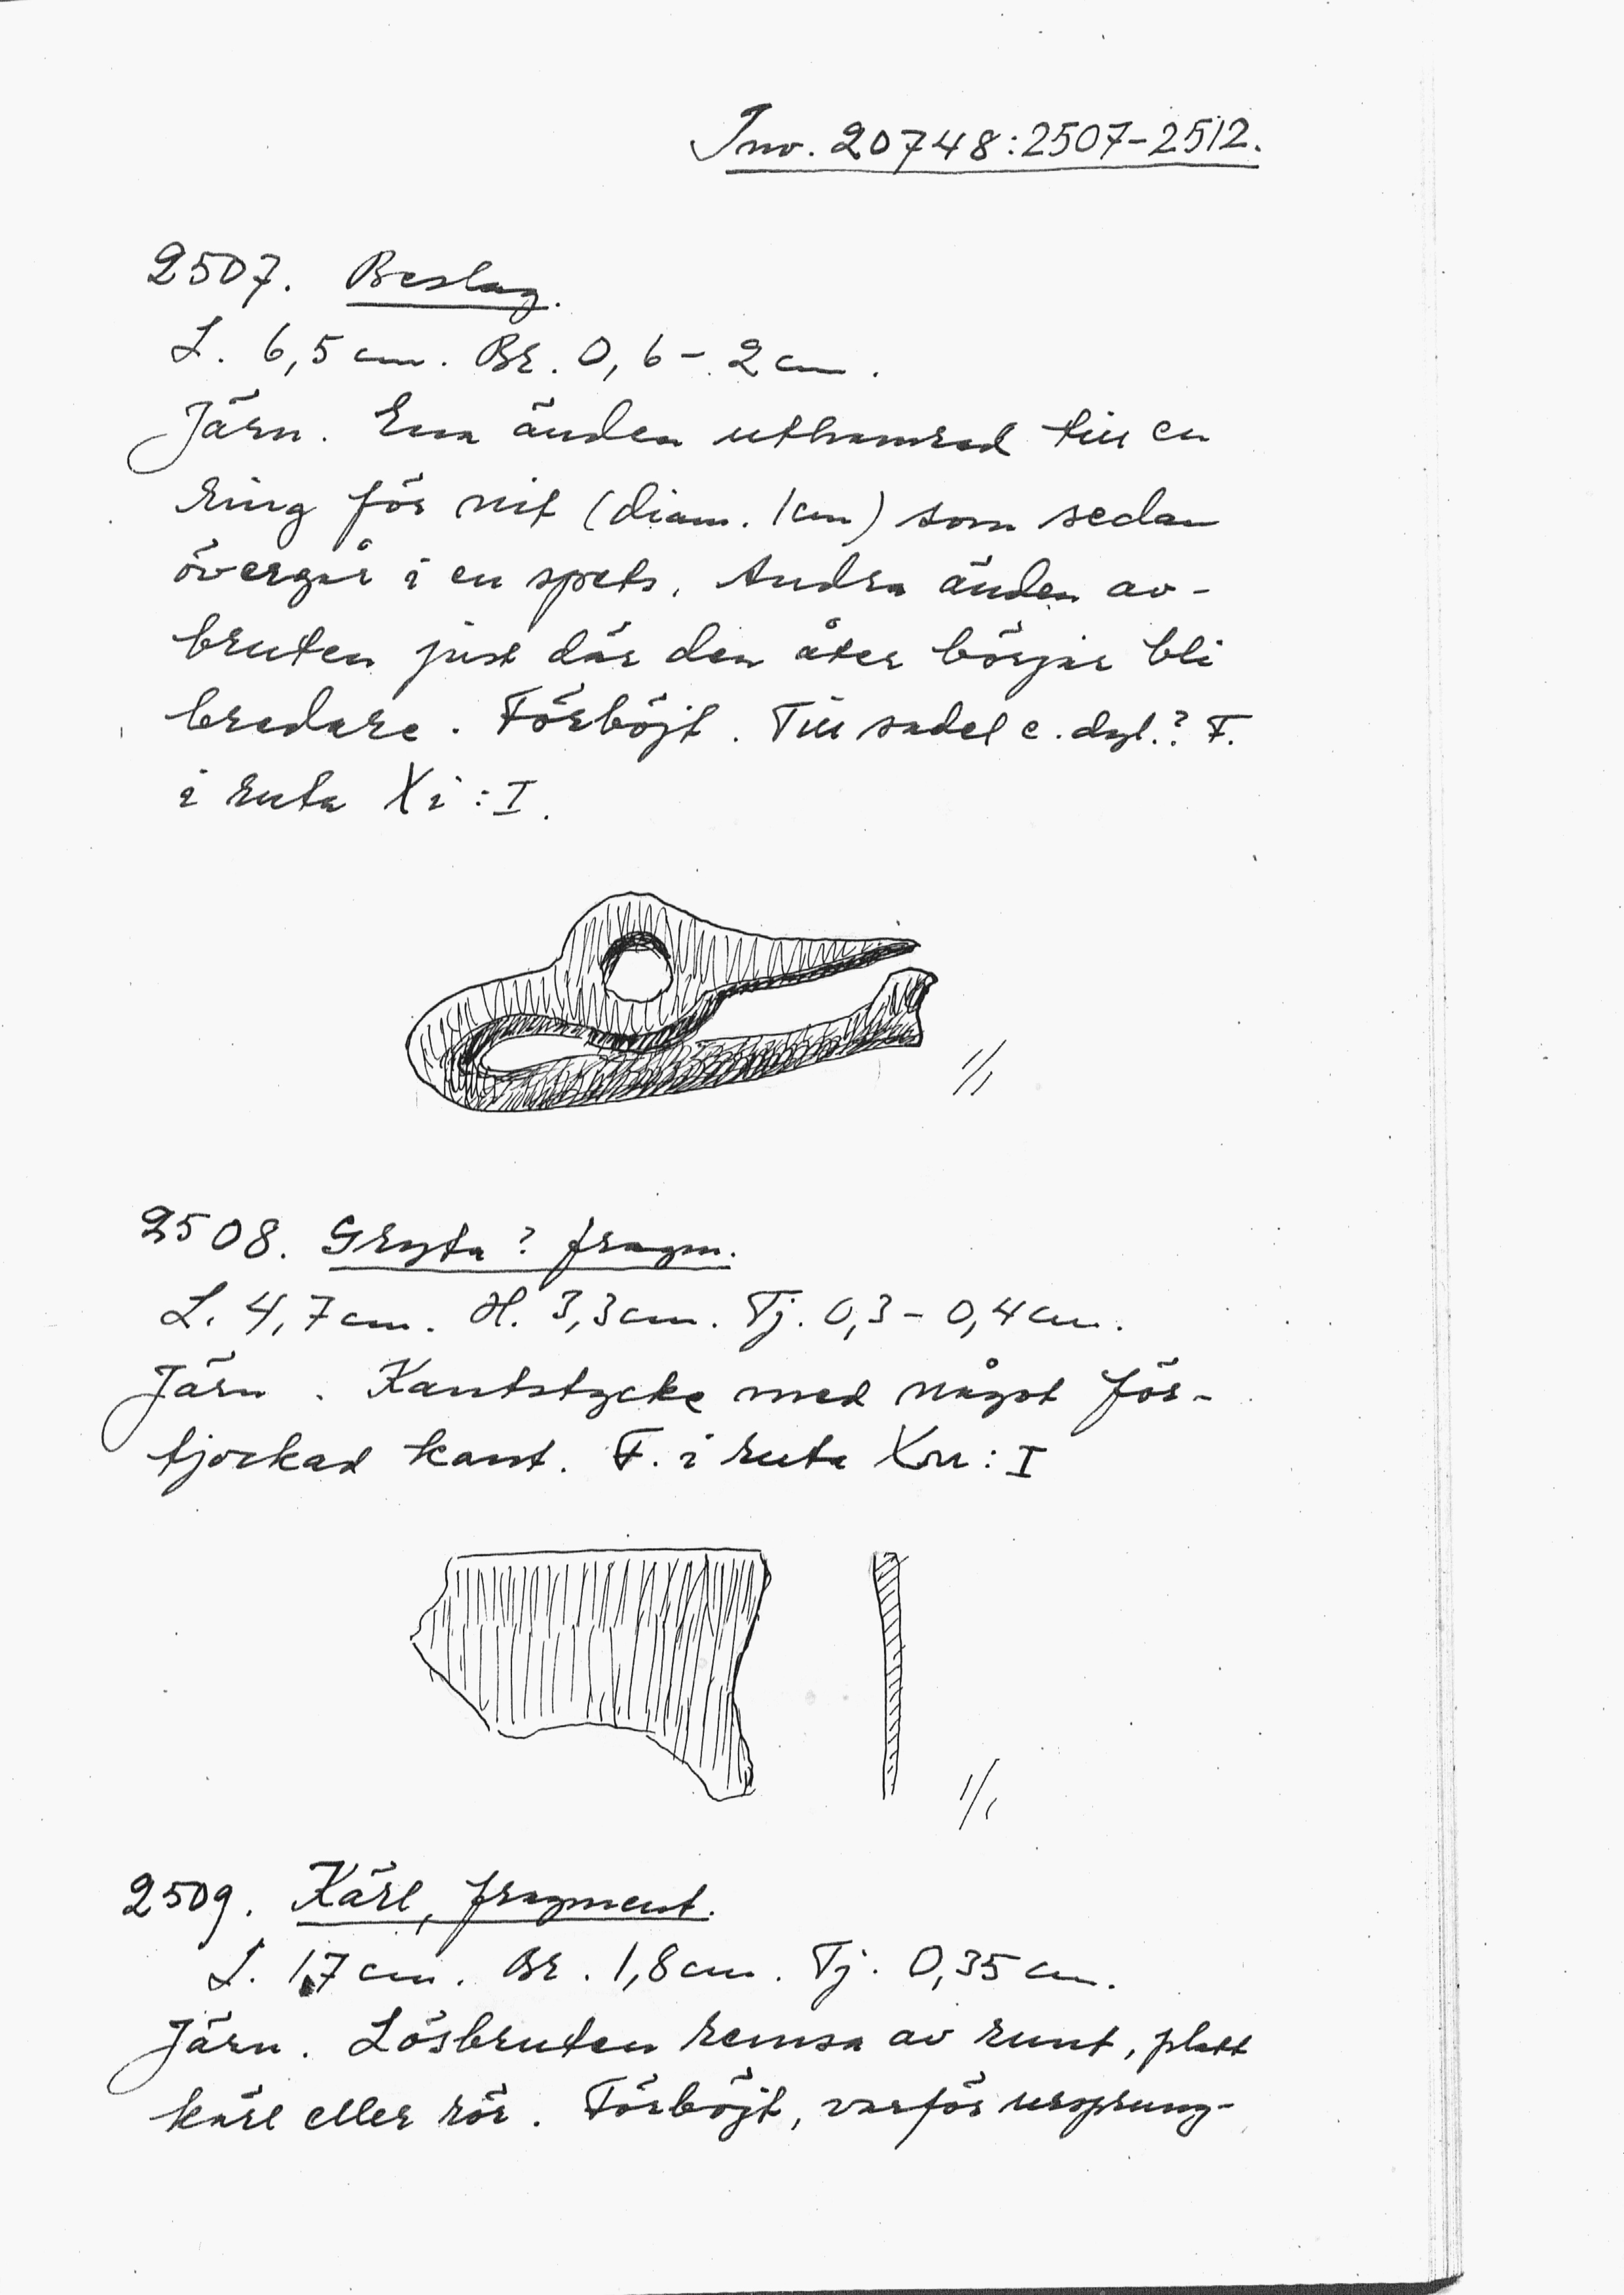 Inv. 20748:2507-2512.
2507. Beslag.
L. 6,5 cm. Br. 0,6 - 2 cm.
Järn. Ena änden uthamrad till en
ring för nit (diam. 1 cm) som sedan
övergår i en spets. Andra änden av-
bruten just där den åter börjar bli
bredare. Förböjt. Till sadel e. dyl.? F.
i ruta Xi:I.
1/1
2508. Gryta? fragm.
L. 4,7 cm. H. 3,3 cm. Tj. 0,3 - 0,4 cm.
Järn. Kantstycke med något för-
tjockad kant. F. i ruta :I
1/1
2509. Kärl, fragment.
L. 17 cm. Br. 1,8 cm. Tj. 0,35 cm.
Järn. Lösbruten remsa av runt, platt
kärl eller rör. Förböjt, varför ursprung-